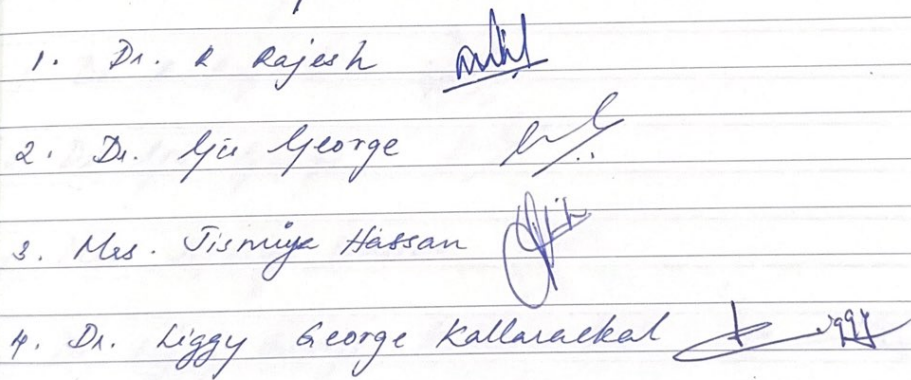 1. Dr. R Rajesh
2. Dr. Giji George
3. Mrs. Jismiya Hassan
4. Dr. Liggy George Kallarackal Liggy